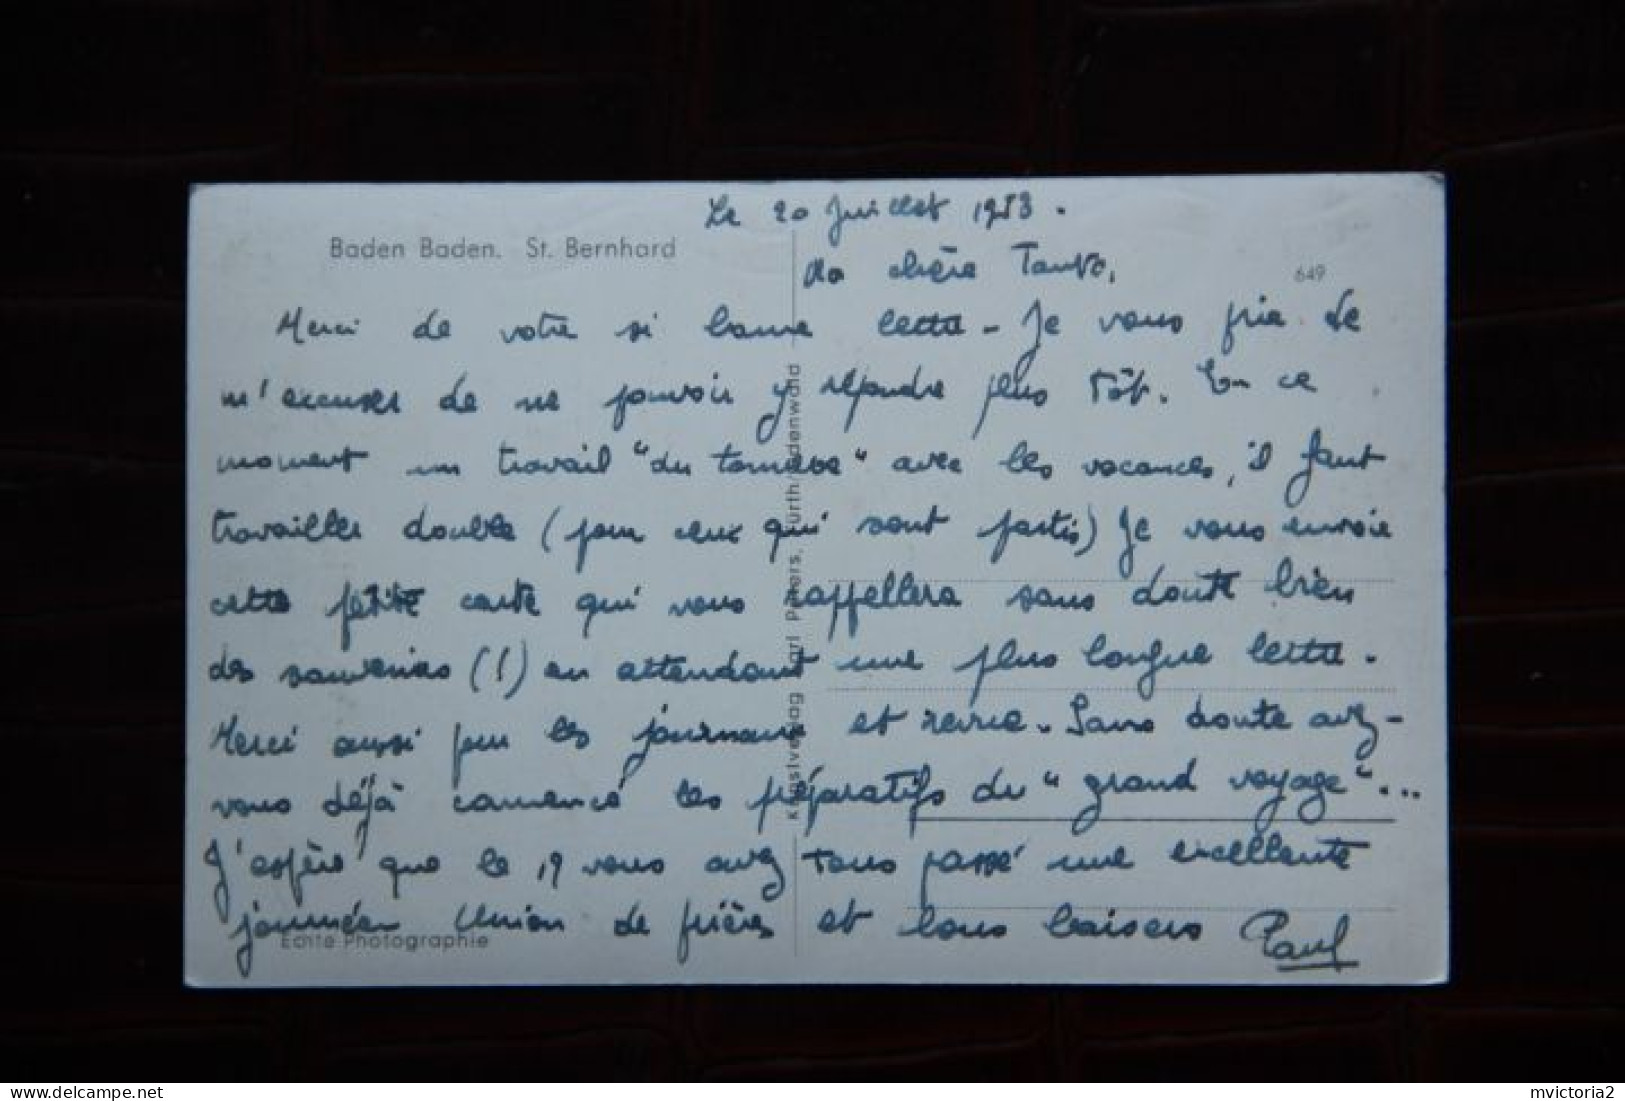 Le 20 Juillet 1953.
Baden Baden. St. Bernhard
Ma chère Tante,
649
Merci de votre si bonne lettre - Je vous prie de
m'excuser de ne pouvoir y répondre plus tôt. En ce
moment un travail "du tonnerre" avec les vacances, il faut
travailler double (pour ceux qui sont partis) Je vous envoie
cette petite carte qui vous rappellera sans doute bien
des souvenirs (!) en attendant une plus longue lettre.
Merci aussi pour les journaux et revue. Sans doute avez-
vous déjà commencé les préparatifs du "grand voyage"...
J'espère que le 19 vous avez tous passé une excellente
journée. Union de prières et bons baisers Paul
Echte Photographie
Kunstverlag Karl Peters, Fürth/Odenwald
delcampe.net
mvictoria2